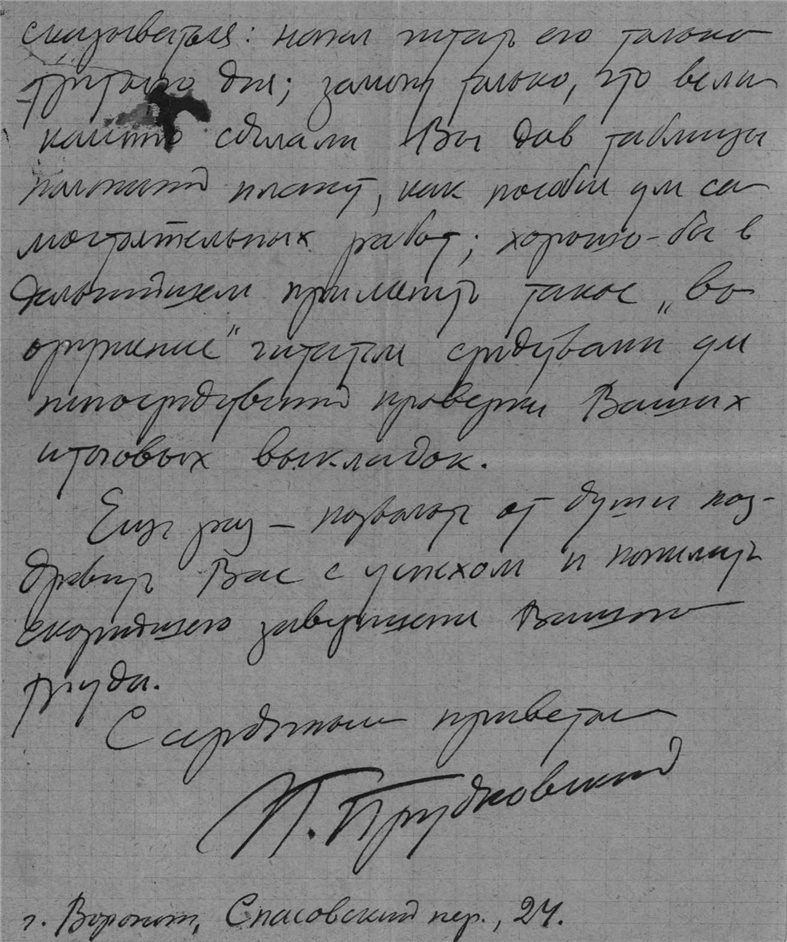 сказывается: начал читать его только
третьего дня; замечу только, что вели
сделали Вы дав таблицы
как пособие для са
мостоятельных работ; хорошо-бы в
дальнейшем применить такое „во
оружение" читателя средствами для
непосредственной проверки Ваших
итоговых выкладок.
Еще раз — позвольте от души поз-
дравить Вас с успехом и пожелать
скорейшего завершения Вашего
труда.
С сердечным приветом
П. Прудковский
г. Воронеж, Спасовский пер., 24.